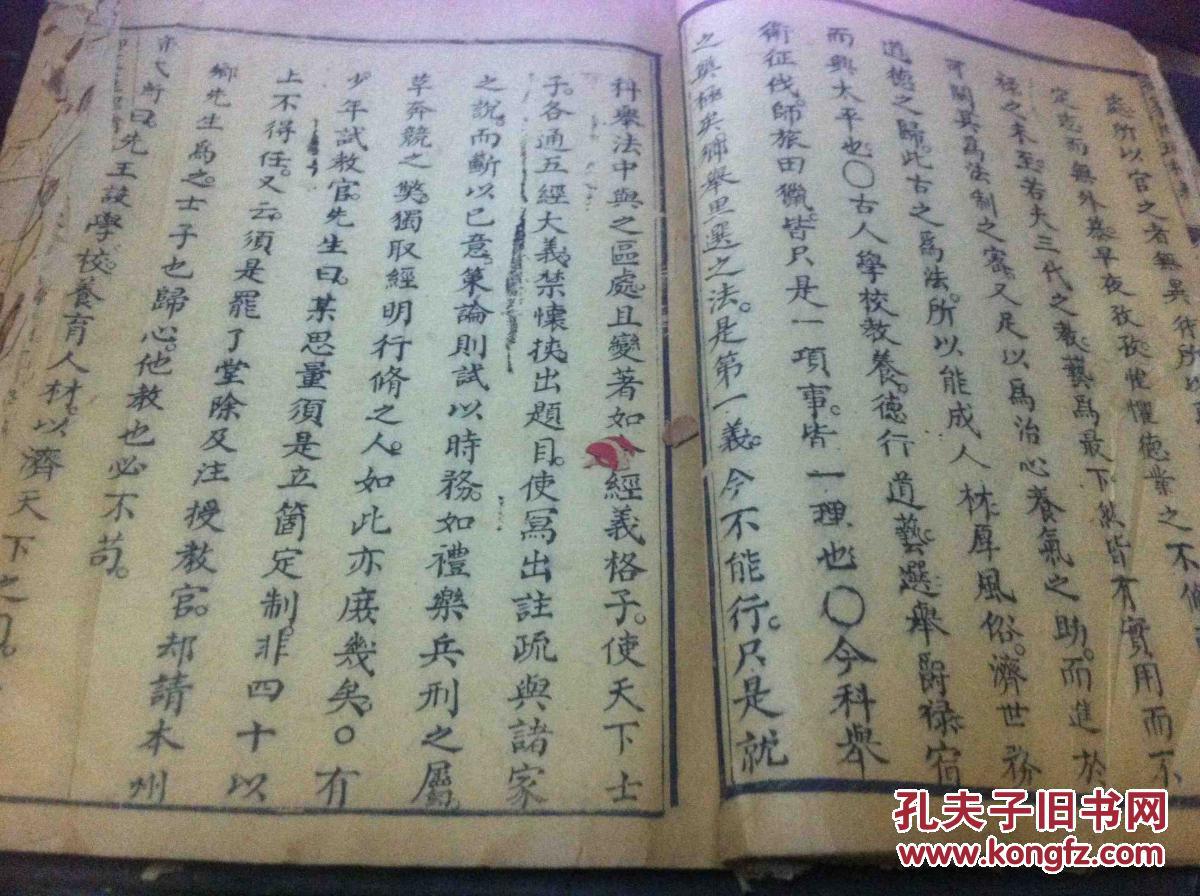 處所以官之者無異術所
定志而無外慕早夜孜孜惟懼德業之不脩
祿之未至若夫三代之教藝爲最下然皆有實用而不
可闕其爲法制之密又足以爲治心養氣之助而進於
道德之歸此古之爲法所以能成人材厚風俗濟世務
而興大平也〇古人學校教養德行道藝選舉爵祿宿
衛征伐師旅田獵皆只是一項事皆一理也〇今科舉
之弊極矣鄉舉里選之法是第一義今不能行只是就
科舉法中與之區處且變著如經義格子使天下士
子各通五經大義禁懷挾出題目使寫出註疏與諸家
之說而斷以己意策論則試以時務如禮樂兵刑之屬
草奔競之弊獨取經明行脩之人如此亦庶幾矣〇有
少年試教官先生曰某思量須是立箇定制非四十以
上不得任又云須是罷了堂除及注授教官却請本州
鄉先生爲之士子也歸心他教也必不苟
曰先王設學校養育人材以濟天下之用
孔夫子旧书网
www.kongfz.com